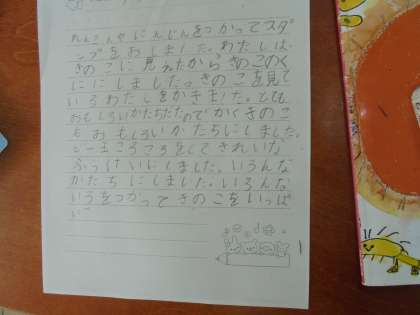 れんこんやにんじんをつかってスタ
ンプをおしました。わたしは、
きのこに見えたからきのこのく
ににしました。きのこを見て
いろわたしをかきました。とても
おもしろいかたちだたのでかくきのこ
もおもしろいかたちにしました。
ころころをしてきれいな
ふうけいにしました。いろんな
かたちにしました。いろんな
いろをつかってきのこをいっぱ